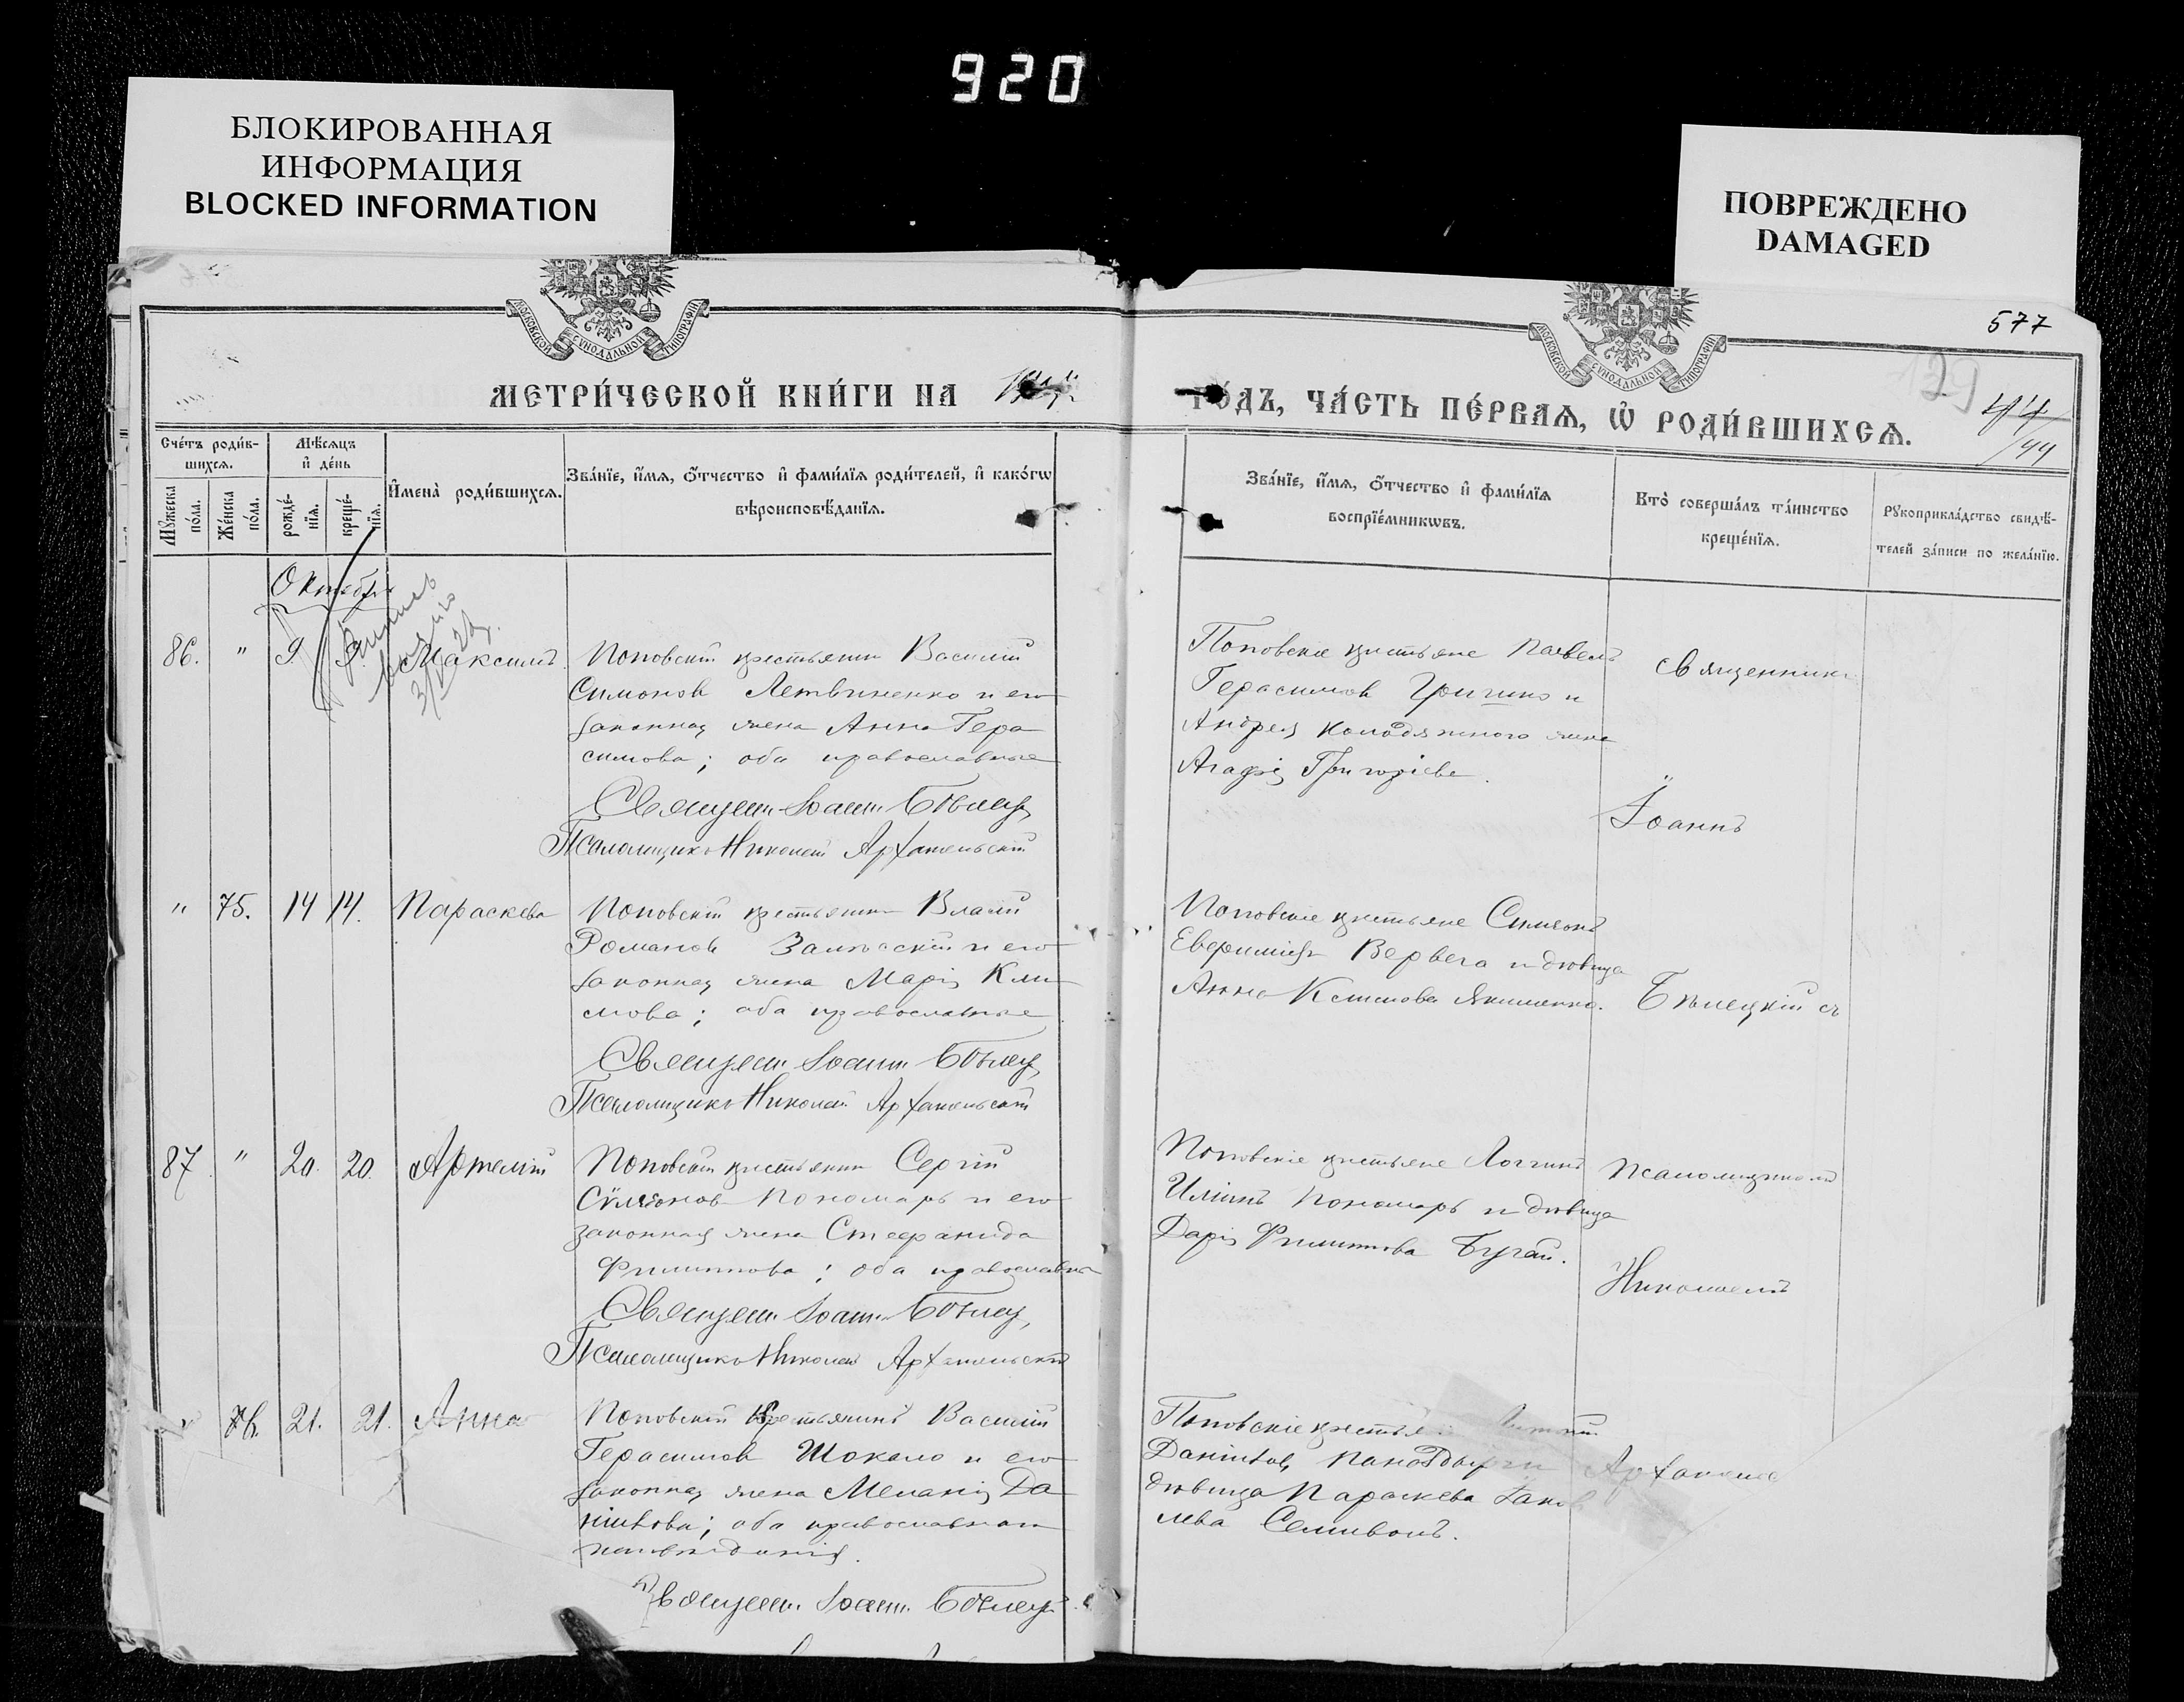 920
БЛОКИРОВАННАЯ
ИНФОРМАЦИЯ
BLOCKED INFORMATION
ПОВРЕЖДЕНО
DAMAGED
577
МОСКОВСКОЙ СѴНОДАЛЬНОЙ ТИПОГРАФІИ
МОСКОВСКОЙ СѴНОДАЛЬНОЙ ТИПОГРАФІИ
129
44
144
МЕТРИ́ЧЕСКОЙ КНИ́ГИ НА
ГО́ДЪ, ЧА́СТЬ ПЕ́РВАѦ, Ѡ҆ РОДИ́ВШИХСѦ.
Сче́тъ роди́в-
шихсѧ.
Мꙋ́жеска по́ла.
Же́нска по́ла.
Мѣ́сѧцъ
и҆ де́нь
рожде́-
нїѧ.
креще́-
нїѧ.
И҆мена̀ роди́вшихсѧ.
Зва́нїе, и҆́мѧ, ѻ҆́тчество и҆ фами́лїѧ роди́телей, и҆ како́гѡ
вѣроисповѣ́данїѧ.
Зва́нїе, и҆́мѧ, ѻ҆́тчество и҆ фами́лїѧ
воспрїе́мникѡвъ.
Кто̀ соверша́лъ та́инство
креще́нїѧ.
Рꙋкоприкла́дство свидѣ́-
телей за́писи по жела́нїю.
Октябрь
86. " 9. 9. Максимъ
Поповскій крестьянин Василій
Симонов Летвиненко и его
законная жена Анна Гера
симова; оба православные
Священ. Іоанн Бѣлец
Псаломщикъ Николай Архангельскій
Поповскіе крестьяне Павелъ
Герасимов Гришко и
Андрея Колодяжного жена
Агафія Григоріева.
Священник
Іоаннъ
" 75. 14 14. Параскева
Поповскій крестьянин Власій
Романов и его
законная жена Марія Кли
мова; оба православные
Священ. Іоанн Бѣлец
Псаломщикъ Николай Архангельскій
Поповскіе крестьяне Симеонъ
Вервега и дѣвица
Анна Климова Якименко.
Бѣлецкій съ
87 " 20. 20. Артемій
Поповскій крестьянин Сергій
Сѵмеонов Пономарь и его
законная жена Стефанида
Филиппова; оба православны
Священ. Іоанн Бѣлец
Псаломщикъ Николай Архангельскій
Поповскіе крестьяне Логгинъ
Иліинъ Пономарь и дѣвица
Дарія Филиппова Бугай.
Псаломщикомъ
Николаемъ
76. 21. 21. Анна
Поповскій Крестьянинъ Василій
Герасимов Шокало и его
законная жена Меланія Да
ніилова; оба православнаго
исповѣданія.
Священ. Іоанн Бѣлец
Поповскіе крестья
Даніилов
дѣвица Параскева Іаков
лева Семиволъ.
Архангел